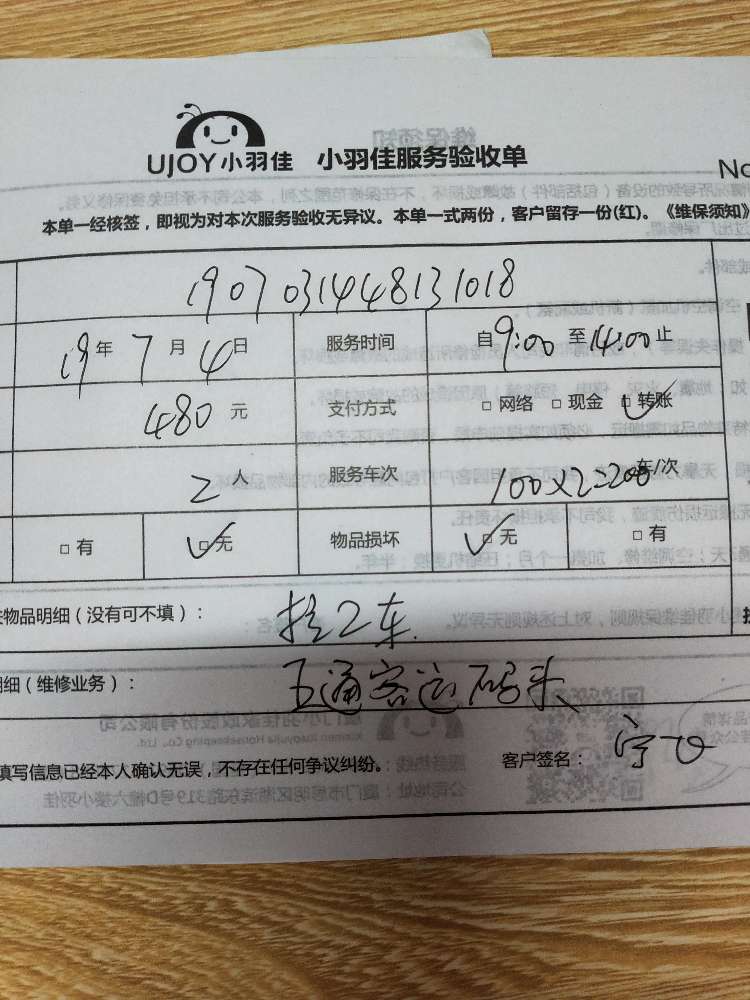 UJOY小羽佳 小羽佳服务验收单
No
本单一经核签，即视为对本次服务验收无异议。本单一式两份，客户留存一份(红)。《维保须知》
1907031448131018
19年7月4日 服务时间 自9:00至14:00止
480元 支付方式 □网络 □现金 □转账
2人 服务车次 100×2=200车/次
□有 □无 物品损坏 □无 □有
物品明细（没有可不填）： 拉2车
细（维修业务）： 五通客运码头
填写信息已经本人确认无误，不存在任何争议纠纷。 客户签名：